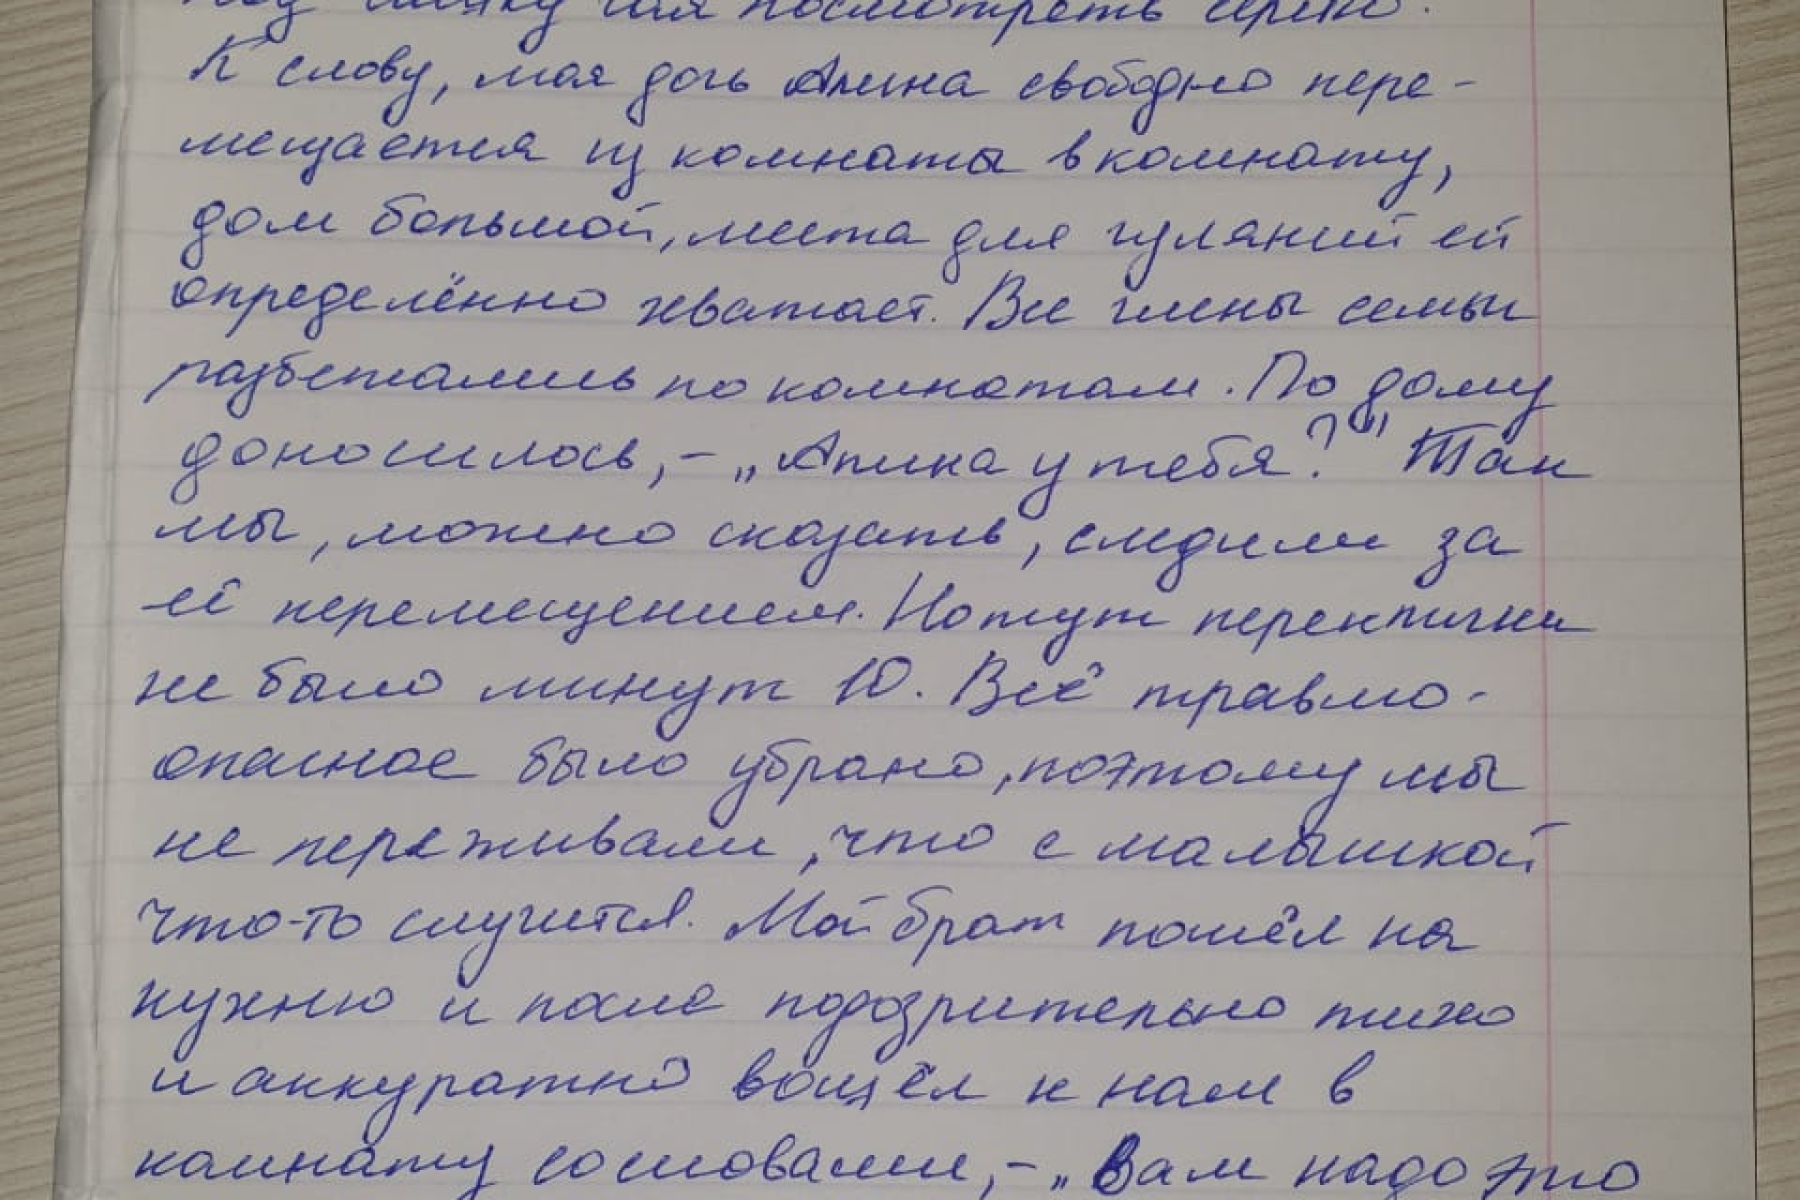 посмотреть
К слову, моя дочь Алина свободно пере-
мещается из комнаты в комнату,
дом большой, места для гуляний ей
определённо хватает. Все члены семьи
разбежались по комнатам. По дому
доносилось, – „Алина у тебя?“ Так
мы, можно сказать, следили за
её перемещением. Но тут переклички
не было минут 10. Всё травмо-
опасное было убрано, поэтому мы
не переживали, что с малышкой
что-то случится. Мой брат пошёл на
кухню и после подозрительно тихо
и аккуратно вошёл к нам в
комнату со словами, – „Вам надо это